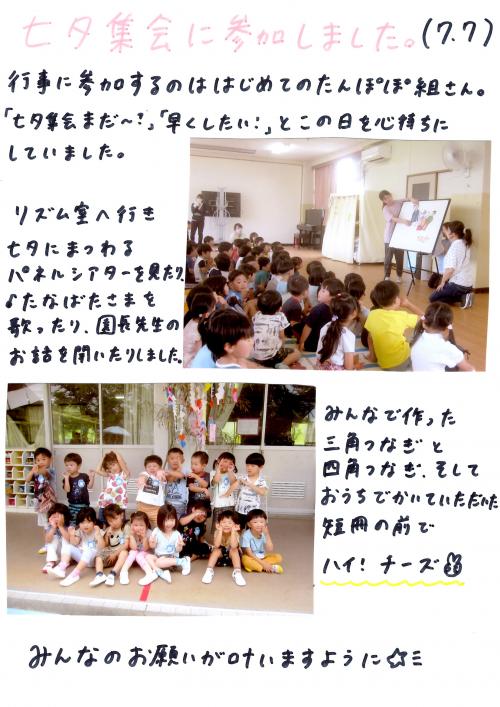 七夕集会に参加しました。(7.7)
行事に参加するのははじめてのたんぽぽ組さん。
「七夕集会まだ～？」、「早くしたい！」とこの日を心待ちに
していました。
リズム室へ行き
七夕にまつわる
パネルシアターを見たり、
♪たなばたさまを
歌ったり、園長先生の
お話を聞いたりしました。
みんなで作った
三角つなぎと
四角つなぎ、そして
おうちでかいていただいた
短冊の前で
ハイ！チーズ
みんなのお願いが叶いますように☆ミ